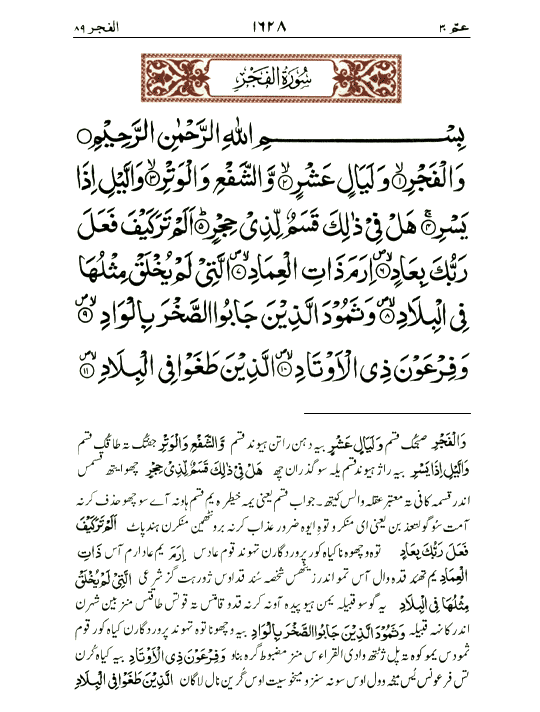 عم ۳۰ ۱۶۲۸ الفجر ۸۹
سُوْرَةُ الْفَجْرِ
بِسْمِ اللهِ الرَّحْمٰنِ الرَّحِيْمِ
وَالْفَجْرِ ۱ وَلَيَالٍ عَشْرٍ ۲ وَّالشَّفْعِ وَالْوَتْرِ ۳ وَالَّيْلِ اِذَا
يَسْرِ ۴ هَلْ فِيْ ذٰلِكَ قَسَمٌ لِّذِيْ حِجْرٍ ۵ اَلَمْ تَرَ كَيْفَ فَعَلَ
رَبُّكَ بِعَادٍ ۶ اِرَمَ ذَاتِ الْعِمَادِ ۷ الَّتِيْ لَمْ يُخْلَقْ مِثْلُهَا
فِي الْبِلَادِ ۸ وَثَمُوْدَ الَّذِيْنَ جَابُوا الصَّخْرَ بِالْوَادِ ۹
وَفِرْعَوْنَ ذِي الْاَوْتَادِ ۱۰ الَّذِيْنَ طَغَوْا فِي الْبِلَادِ ۱۱
وَالْفَجْرِ صبحُک قسم وَلَيَالٍ عَشْرٍ بیہ دہن راتن ہیوند قسم وَّالشَّفْعِ وَالْوَتْرِ جفتُک تہ طاقُک قسم
وَالَّيْلِ اِذَا يَسْرِ بیہ راژ ہیوند قسم یلہ سو گذران چھ هَلْ فِيْ ذٰلِكَ قَسَمٌ لِّذِيْ حِجْرٍ چھوا یتھ قسمس
اندر قسمہ کافی تہ معتبر عقلہ والس کیتھ۔ جواب قسم یعنی یمہ خطرہ یم قسم ہاونہ آے سو چھو حذف کرنہ
آمت سُو گو لتعذبن یعنی ای منکرو توہِ ایوہ ضرور عذاب کرنہ برونٹھمن منکرن ہند پاٹ اَلَمْ تَرَ كَيْفَ
فَعَلَ رَبُّكَ بِعَادٍ توہ وچھوہ نا کیاہ کور پروردگارن تہوند قوم عادس اِرَمَ یم عاد ارم آس ذَاتِ
الْعِمَادِ یم تھند قدہ وال آس تمو اندر شخصہ سُند قد اوس ژور ہت گز شرعی الَّتِيْ لَمْ يُخْلَقْ
مِثْلُهَا فِي الْبِلَادِ یہ گو سو قبیلہ یمن ہیو پیدہ آونہ کرنہ قد و قامتس تہ قوتس طاقتس منز بین شہرن
اندر کانہہ قبیلہ وَثَمُوْدَ الَّذِيْنَ جَابُوا الصَّخْرَ بِالْوَادِ بیہ وچھونا توہ تہوند پروردگارن کیاہ کور قوم
ثمودس یمو کوہ تہ پل وادی القراءس منز مضبوط گرہ بناو وَفِرْعَوْنَ ذِي الْاَوْتَادِ بیہ کیاہ کُرن
تس فرعونس یُس میخہ وول اوس سونہ سنزو میخو سیت اوس گرین نال لاگان الَّذِيْنَ طَغَوْا فِي الْبِلَادِ